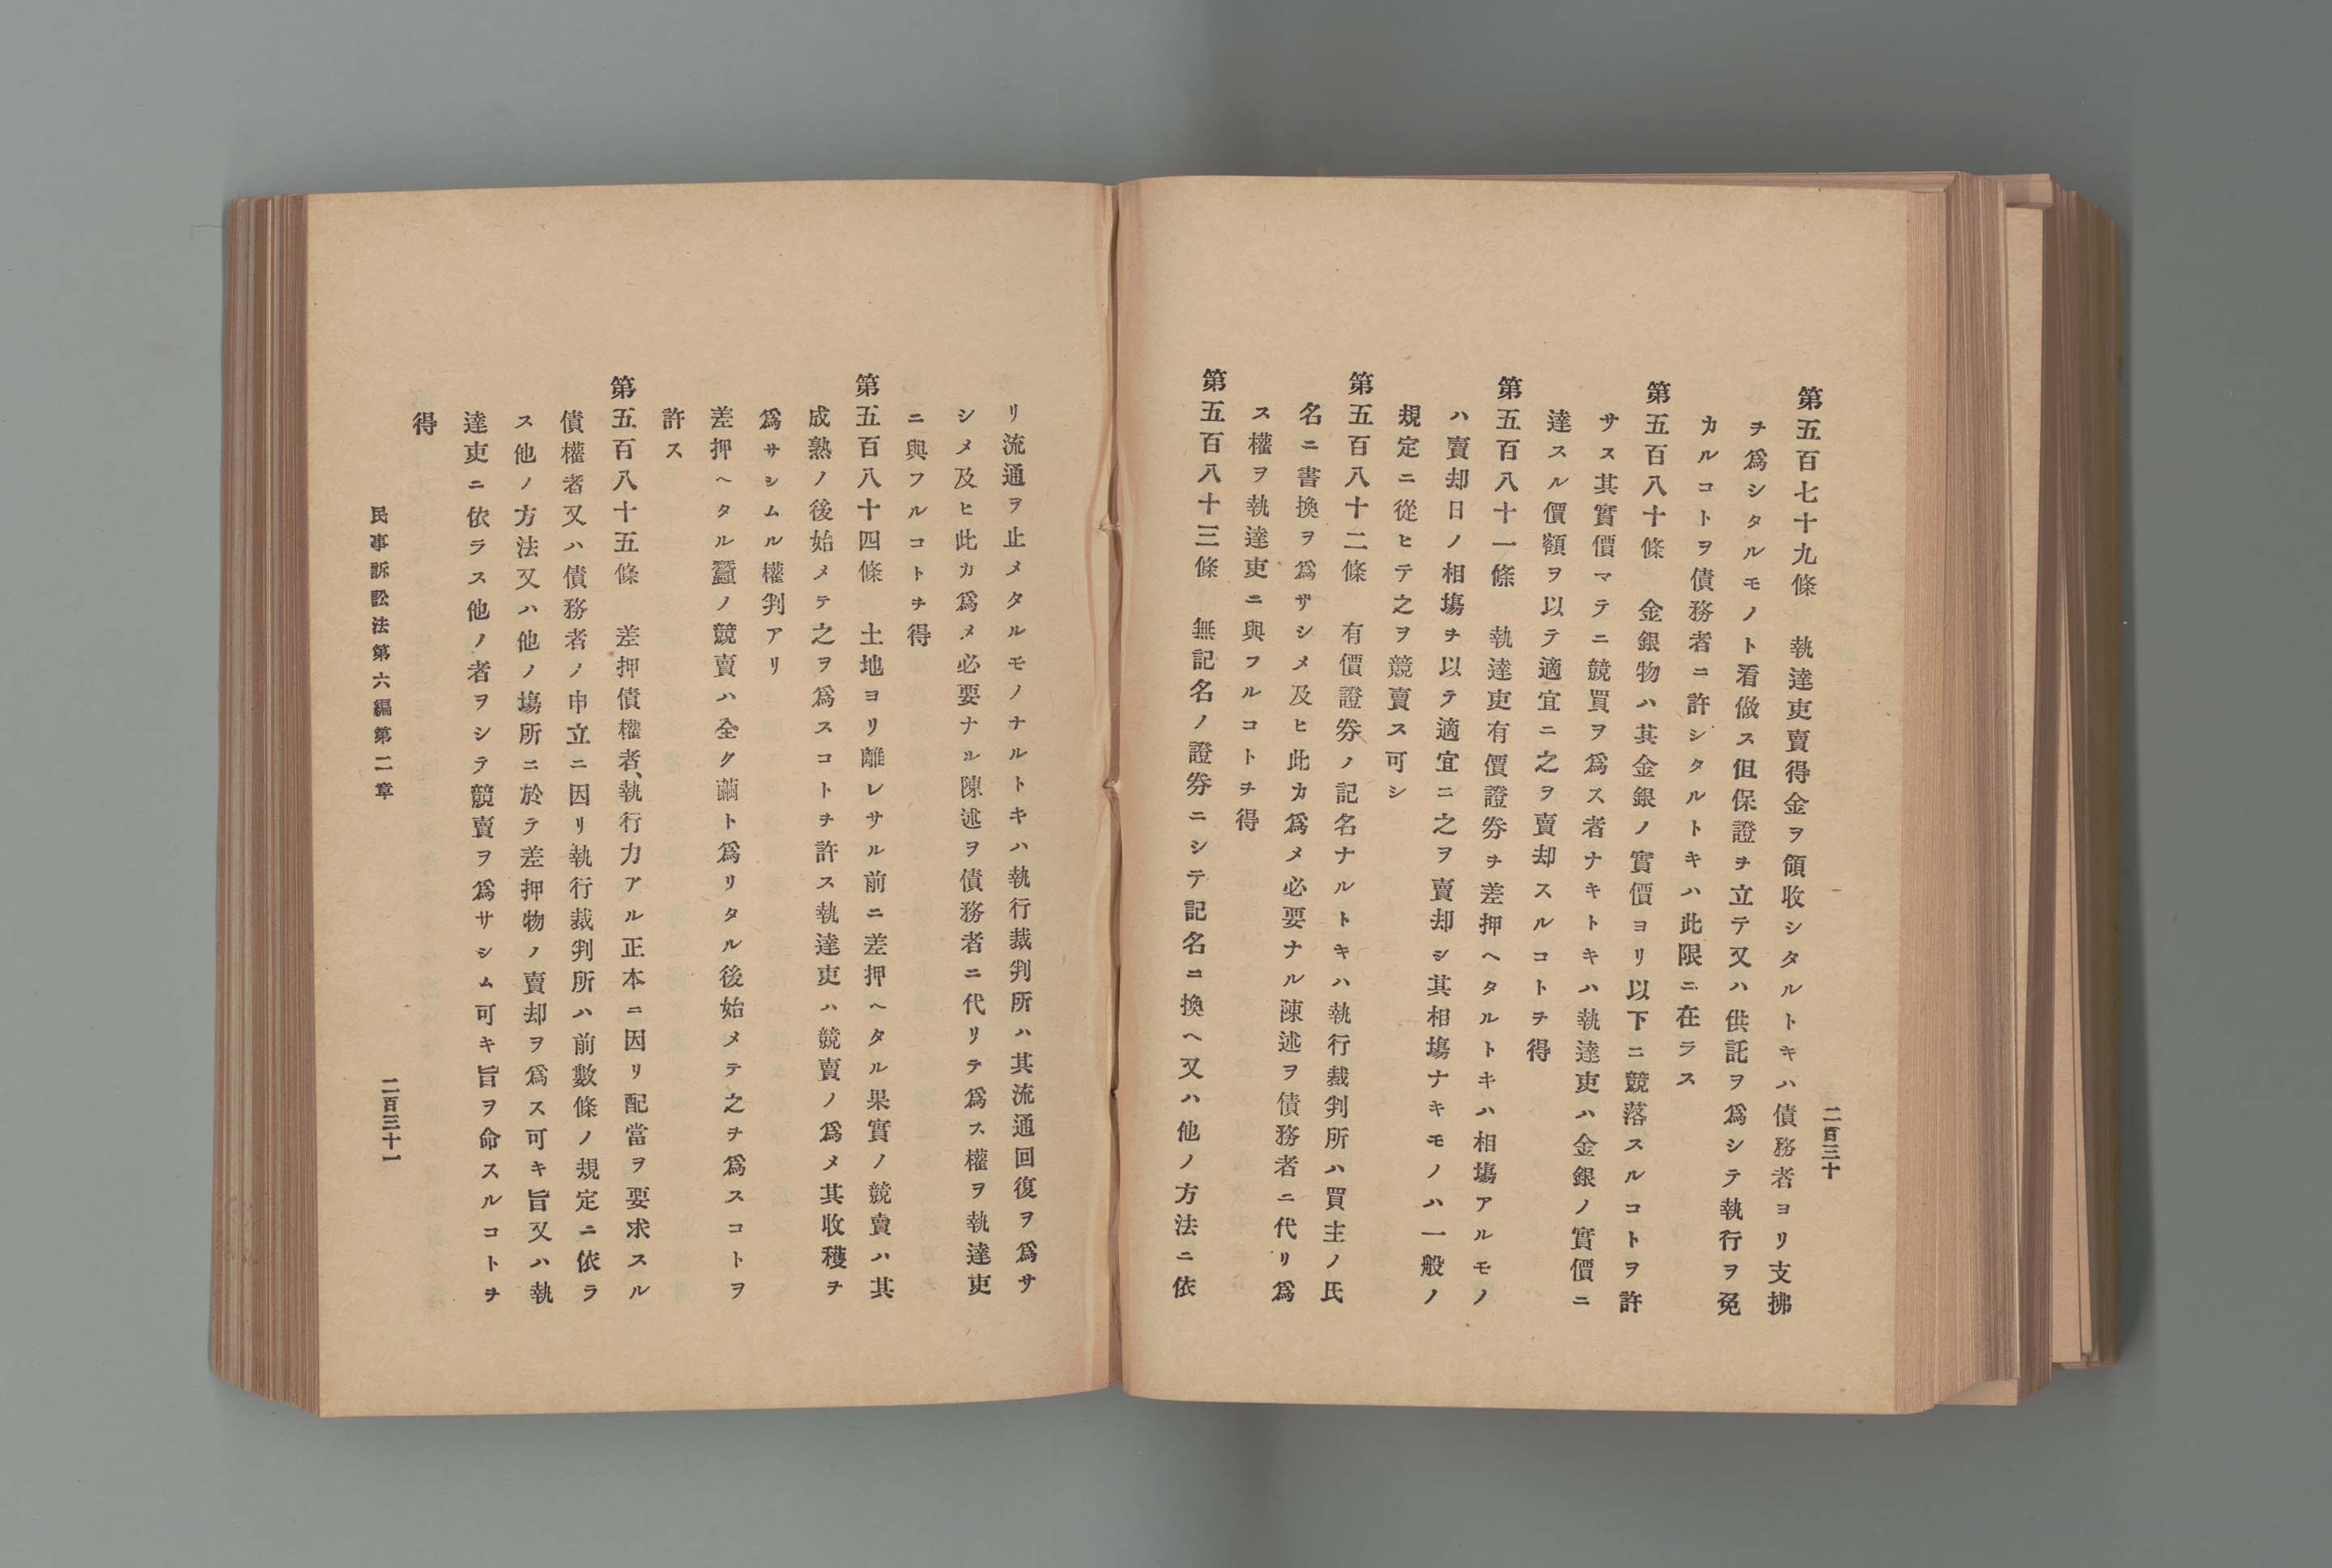 二百三十
第五百七十九條　執達吏賣得金ヲ領收シタルトキハ債務者ヨリ支拂
ヲ爲シタルモノト看做ス但保證ヲ立テ又ハ供託ヲ爲シテ執行ヲ免
カルコトヲ債務者ニ許シタルトキハ此限ニ在ラス
第五百八十條　金銀物ハ其金銀ノ實價ヨリ以下ニ競落スルコトヲ許
サス其實價マテニ競買ヲ爲ス者ナキトキハ執達吏ハ金銀ノ實價ニ
達スル價額ヲ以テ適宜ニ之ヲ賣却スルコトヲ得
第五百八十一條　執達吏有價證券ヲ差押ヘタルトキハ相塲アルモノ
ハ賣却日ノ相塲ヲ以テ適宜ニ之ヲ賣却シ其相塲ナキモノハ一般ノ
規定ニ從ヒテ之ヲ競賣ス可シ
第五百八十二條　有價證券ノ記名ナルトキハ執行裁判所ハ買主ノ氏
名ニ書換ヲ爲サシメ及ヒ此カ爲メ必要ナル陳述ヲ債務者ニ代リ爲
ス權ヲ執達吏ニ與フルコトヲ得
第五百八十三條　無記名ノ證券ニシテ記名ニ換ヘ又ハ他ノ方法ニ依
リ流通ヲ止メタルモノナルトキハ執行裁判所ハ其流通回復ヲ爲サ
シメ及ヒ此カ爲メ必要ナル陳述ヲ債務者ニ代リテ爲ス權ヲ執達吏
ニ與フルコトヲ得
第五百八十四條　土地ヨリ離レサル前ニ差押ヘタル果實ノ競賣ハ其
成熟ノ後始メテ之ヲ爲スコトヲ許ス執達吏ハ競賣ノ爲メ其收穫ヲ
爲サシムル權利アリ
差押ヘタル蠶ノ競賣ハ全ク繭ト爲リタル後始メテ之ヲ爲スコトヲ
許ス
第五百八十五條　差押債權者、執行力アル正本ニ因リ配當ヲ要求スル
債權者又ハ債務者ノ申立ニ因リ執行裁判所ハ前數條ノ規定ニ依ラ
ス他ノ方法又ハ他ノ塲所ニ於テ差押物ノ賣却ヲ爲ス可キ旨又ハ執
達吏ニ依ラス他ノ者ヲシテ競賣ヲ爲サシム可キ旨ヲ命スルコトヲ
得
民事訴訟法第六編第二章
二百三十一